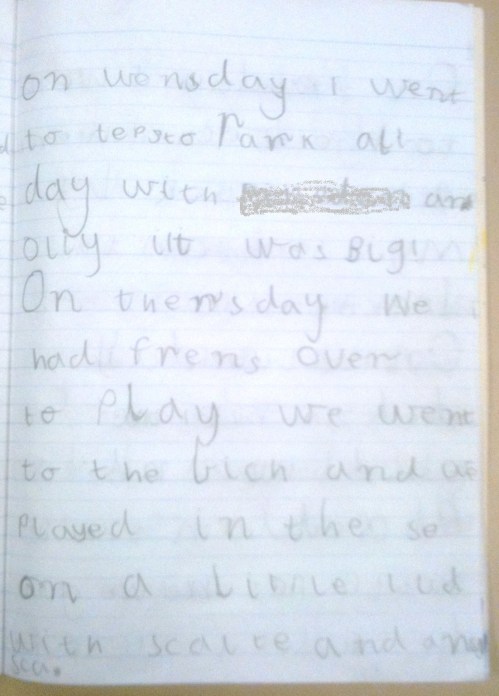 on wensday i went
to leesto Park all
day with and
olly it was Big!
On thersday we
had frens over
to Play we went
to the bich and we
Played in the se
on a little lid
with scalte and
sca.